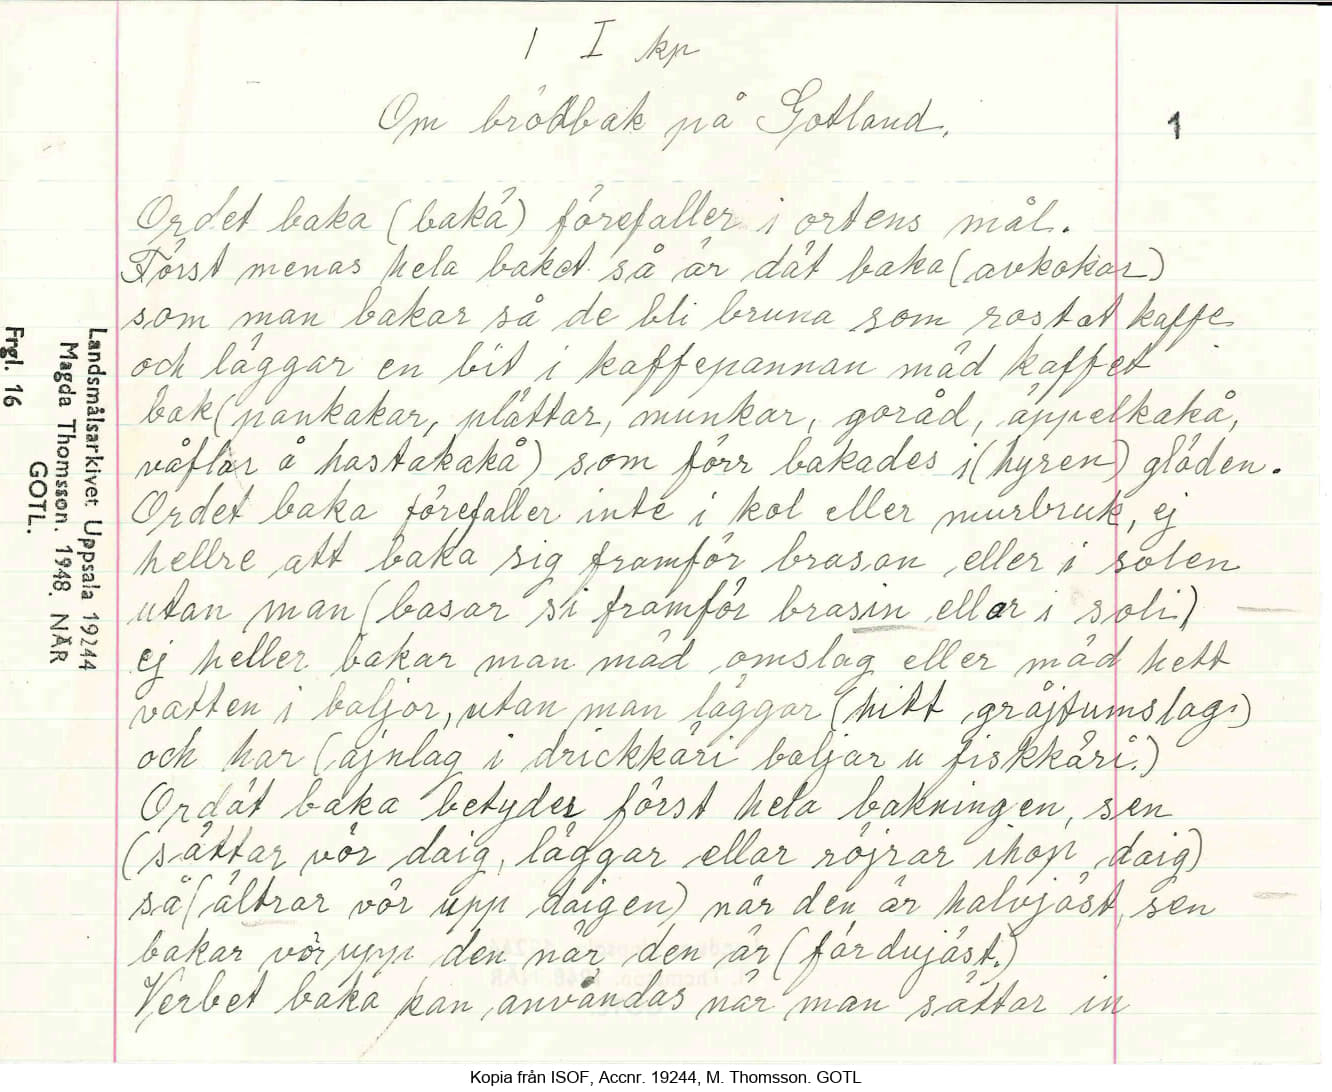 1 I kp
Om brödbak på Gotland.
1
Ordet baka (bakä) förefaller i ortens mål.
Först menas hela baket så är dät baka (avkokar)
som man bakar så de bli bruna som rostat kaffe
och läggar en bit i kaffepannan mäd kaffet
bak (pankakar, plättar, munkar, goråd, äppelkakå,
våflar å hastakakå) som förr bakades i (hyren) glöden.
Ordet baka förefaller inte i kol eller murbruk, ej
hellre att baka sig framför brasan eller i solen
utan man (basar si framför brasin ellar i soli)
ej heller bakar man mäd omslag eller mäd hett
vatten i baljor, utan man läggar (hitt gråjtumslag)
och har (äjnlag i drickkäri baljar u fiskkäri.)
Ordät baka betyder först hela bakningen, sen
(sättar vör daig, läggar ellar röjrar ihop daig)
så (ältrar vör upp daigen) när den är halvjäst, sen
bakar vör upp den när den är (färdujäst.)
Verbet baka kan användas när man sättar in
Landsmålsarkivet Uppsala 19244
Magda Thomsson. 1948. NÄR
GOTL.
Frgl. 16
Kopia från ISOF, Accnr. 19244, M. Thomsson. GOTL